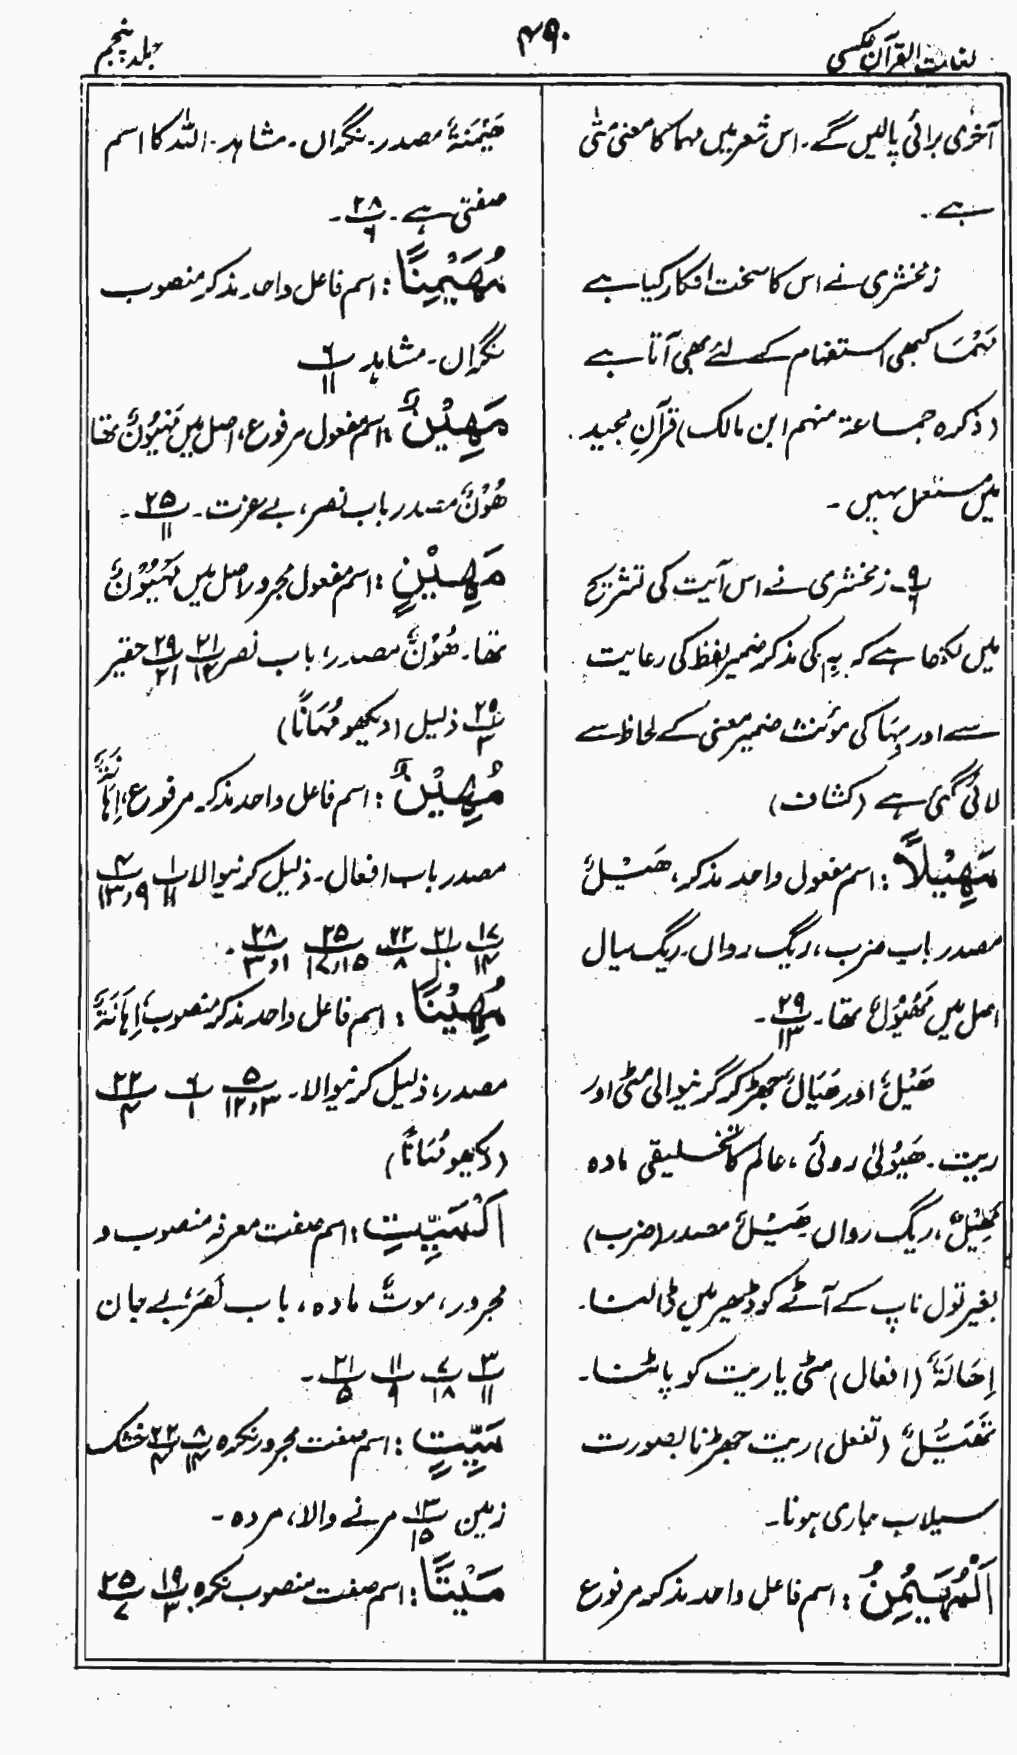 لغات القرآن عکسی
۴۹۰
جلد پنجم
آخری برائی پالیں گے۔ اس شعر میں مہما کا معنی متٰی
ہے۔
زمخشری نے اس کا سخت انکار کیا ہے
مَہْمَا کبھی استفہام کے لئے بھی آتا ہے
(ذکرہ جماعۃ منہم ابن مالک) قرآنِ مجید
میں مستعمل نہیں۔
۹/۶ ۔ زمخشری نے اس آیت کی تشریح
میں لکھا ہے کہ بِہٖ کی مذکر ضمیر لفظ کی رعایت
سے اور بِہَا کی مؤنث ضمیر معنی کے لحاظ سے
لائی گئی ہے (کشاف)
مَھِیْلًا : اسم مفعول واحد مذکر، ھَیْلٌ
مصدر باب ضرب، ریگ رواں۔ ریگ سیال
اصل میں مَھْیُوْلٌ تھا۔ ۲۹/۱۳ ۔
ھَیْلٌ اور ھَیَالٌ جھڑ کر گرنیوالی مٹی اور
ریت۔ ھَیُوْلٰی روئی، عالم کا تخلیقی مادہ
ریگ رواں ھَیْلٌ مصدر (ضرب)
بغیر تول ناپ کے آٹے کو ڈھیر میں ڈالنا۔
اِھَالَۃٌ (افعال) مٹی یا ریت کو پاٹنا۔
تَھَیُّلٌ (تفعل) ریت جھڑنا بصورت
سیلاب جاری ہونا۔
اَلْمُھَیْمِنُ : اسم فاعل واحد مذکر مرفوع
ھَیْمَنَۃٌ مصدر۔ نگراں۔ مشاہد۔ اللہ کا اسم
صفتی ہے۔ ۲۸/۶ ۔
مُھَیْمِنًا : اسم فاعل واحد مذکر منصوب
نگراں۔ مشاہد ۶/۱۱
مَھِیْنٌ : اسم مفعول مرفوع، اصل میں مَہْیُوْنٌ تھا
ھُوْنٌ مصدر باب نصر، بے عزت۔ ۲۵/۱۱ ۔
مَھِیْنٍ : اسم مفعول مجرور اصل میں مَہْیُوْنٌ
تھا۔ ھُوْنٌ مصدر، باب نصر ۲۱/۱۴ ۲۹/۲۱ حقیر
۲۹/۳ ذلیل (دیکھو مُہَانًا)
مُھِیْنٌ : اسم فاعل واحد مذکر۔ مرفوع، اِہَانَۃٌ
مصدر باب افعال۔ ذلیل کرنیوالا ۱/۱۱ ۴/۹،۱۳
۱۷/۱۴ ۲۱/۱۰ ۲۲/۸ ۲۵/۱۵،۱۷ ۲۸/۱،۳ ۔
مُھِیْنًا : اسم فاعل واحد مذکر منصوب، اِہَانَۃٌ
مصدر، ذلیل کرنیوالا۔ ۵/۳،۱۲ ۶/۱ ۲۲/۴
(دیکھو مُہَانًا)
اَلْمَیِّتِ : اسم صفت معرفہ منصوب و
مجرور، موتٌ مادہ، باب نَصَرَ، بے جان
۳/۱۱ ۷/۱۸ ۱۱/۹ ۲۱/۵ ۔
مَیِّتٍ : اسم صفت مجرور نکرہ ۸/۱۴ ۲۲/۱۴ خشک
زمین ۱۳/۱۵ مرنے والا، مردہ۔
مَیْتًا : اسم صفت منصوب نکرہ ۱۹/۳ ۲۵/۷